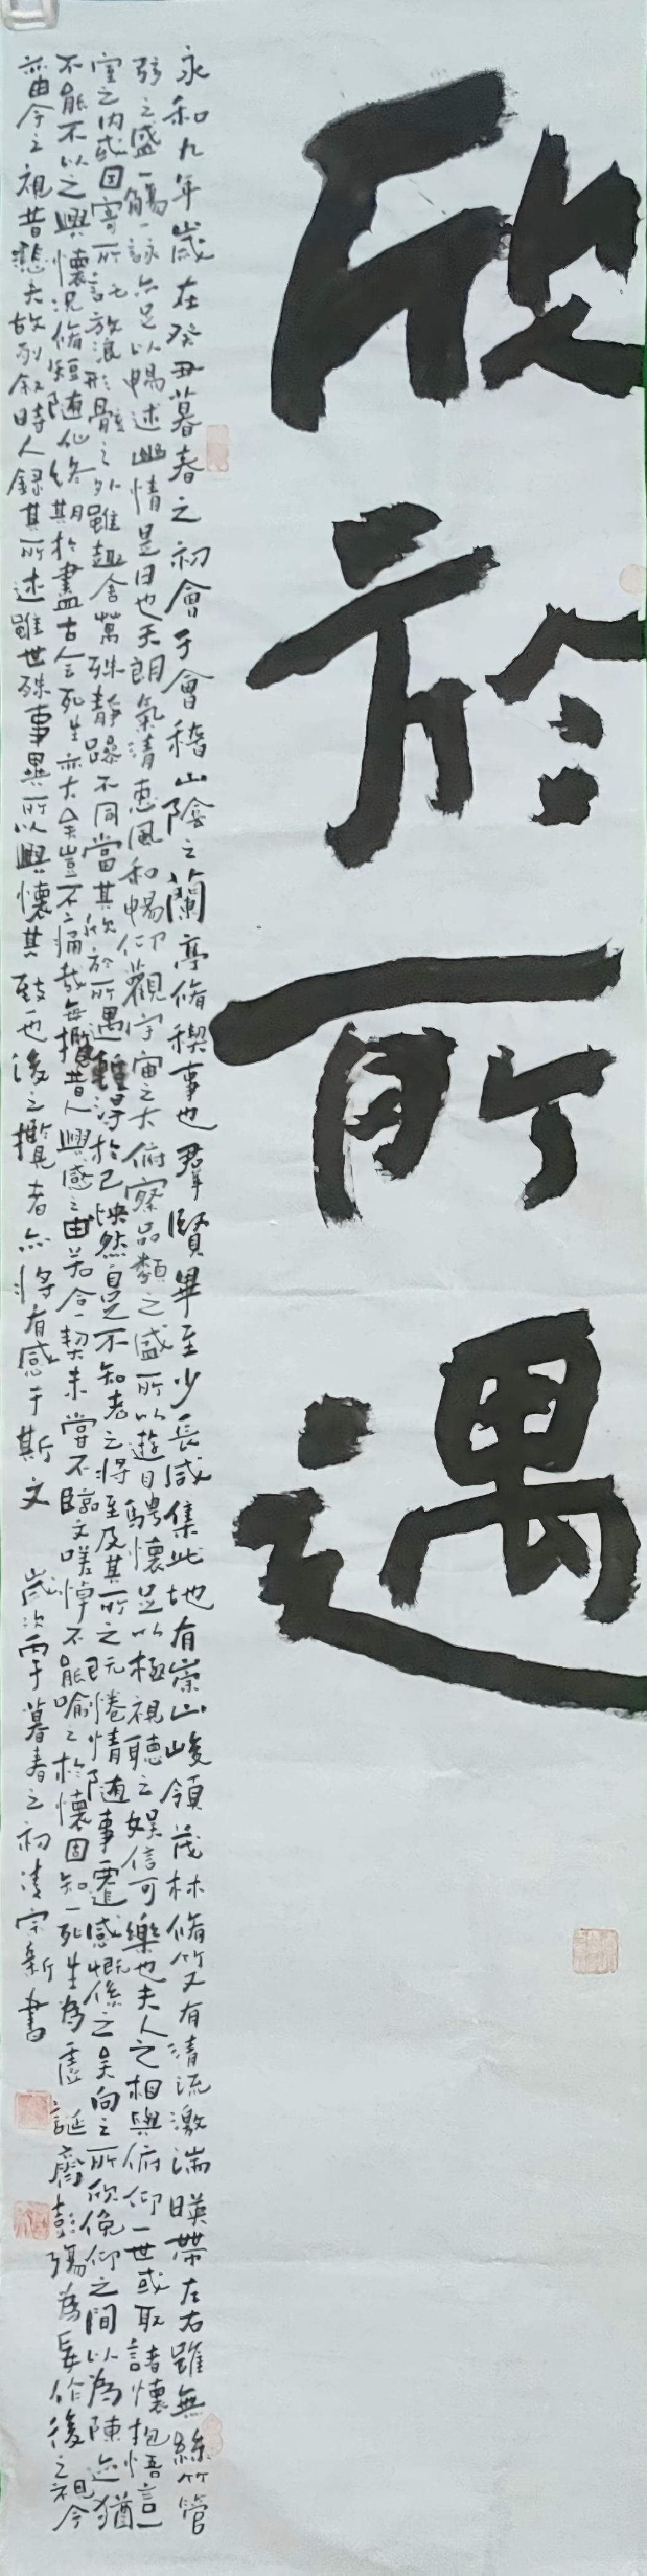 欣於所遇
永和九年歲在癸丑暮春之初會于會稽山陰之蘭亭脩稧事也羣賢畢至少長咸集此地有崇山峻領茂林脩竹又有清流激湍暎帶左右雖無絲竹管
弦之盛一觴一詠亦足以暢述幽情是日也天朗氣清惠風和暢仰觀宇宙之大俯察品類之盛所以遊目騁懷足以極視聽之娛信可樂也夫人之相與俯仰一世或取諸懷抱悟言一
室之内或因寄所託放浪形骸之外雖趣舍萬殊靜躁不同當其欣於所遇暫得於己怏然自足不知老之將至及其所之既惓情隨事遷感慨係之矣向之所欣俛仰之間以為陳迹猶
不能不以之興懷況脩短隨化終期於盡古人云死生亦大矣豈不痛哉每攬昔人興感之由若合一契未嘗不臨文嗟悼不能喻之於懷固知一死生為虛誕齊彭殤為妄作後之視今
亦由今之視昔悲夫故列敘時人錄其所述雖世殊事異所以興懷其致一也後之攬者亦將有感于斯文 歲次暮春之初凌宗新書